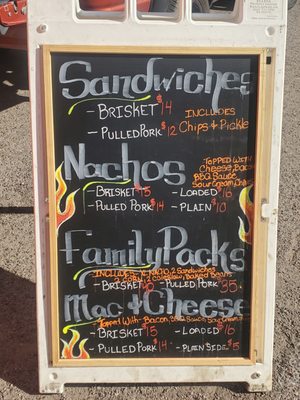 Sandwiches
- Brisket $14
Includes
Chips & Pickle
- Pulled Pork $12
Nachos
Topped With
Cheese, Bacon
BBQ Sauce
Sour Cream
- Brisket $15 - Loaded $16
- Pulled Pork $14 - Plain $10
Family Packs
Includes 2 Sandwiches
Baked Beans
- Brisket - Pulled Pork $35
Mac & Cheese
- Topped With - Bacon, BBQ Sauce, Sour Cream
- Brisket $15 - Loaded $16
- Pulled Pork $14 - Plain Side $5